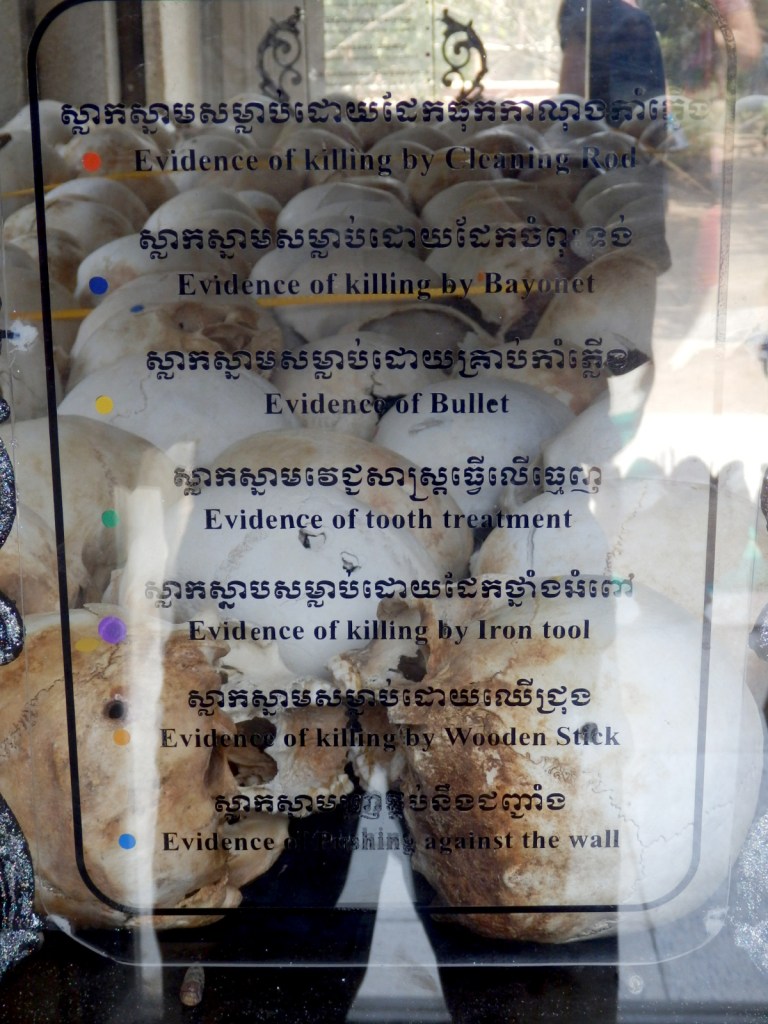 ស្លាកស្នាមសម្លាប់ដោយដែកធុកកាណុងកាំភ្លើង
Evidence of killing by Cleaning Rod
ស្លាកស្នាមសម្លាប់ដោយដែកចំពុះទង់
Evidence of killing by Bayonet
ស្លាកស្នាមសម្លាប់ដោយគ្រាប់កាំភ្លើង
Evidence of Bullet
ស្លាកស្នាមវេជ្ជសាស្ត្រធ្វើលើធ្មេញ
Evidence of tooth treatment
ស្លាកស្នាបសម្លាប់ដោយដែកថ្នាំងអំពៅ
Evidence of killing by Iron tool
ស្លាកស្នាមសម្លាប់ដោយឈើជ្រុង
Evidence of killing by Wooden Stick
នឹងជញ្ជាំង
Evidence of Pushing against the wall